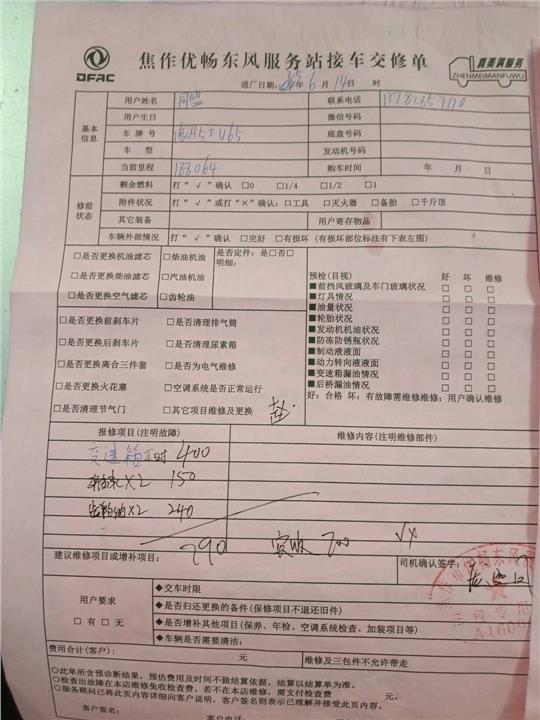 DFAC
焦作优畅东风服务站接车交修单
真美满服务
ZHENMEIMANFUWU
进厂日期: 年 6 月 14 日 时
基本信息
用户姓名
联系电话
用户生日
微信号码
车 牌 号
底盘号码
车 型
发动机号码
当前里程 188064
购车时间 年 月 日
修前状态
剩余燃料 打“√”确认 □0 □1/4 □1/2 □1
附件状况 打“√”或打“×”确认：□工具 □灭火器 □备胎 □千斤顶
其它装备 用户寄存物品
车辆外部情况 打“√”确认 □完好 □有损坏（有损坏部位标注有下表左图）
□是否更换机油滤芯 □柴油机油 是否定件：是□否□
明细：
□是否更换柴油滤芯 □汽油机油
□是否更换空气滤芯 □齿轮油
□是否更换前刹车片 □是否清理排气筒
□是否更换后刹车片 □是否清理尿素箱
□是否更换离合三件套 □是否为电气维修
□是否更换火花塞 □空调系统是否正常运行
□是否清理节气门 □其它项目维修及更换
预检(目视) 好 坏 维修
■前挡风玻璃及车门玻璃状况 □ □ □
■灯具情况 □ □ □
■油量状况 □ □ □
■轮胎状况 □ □ □
■发动机机油状况 □ □ □
■防冻防锈瓶状况 □ □ □
■制动液液面 □ □ □
■动力转向液液面 □ □ □
■变速箱漏油情况 □ □ □
■后桥漏油情况 □ □ □
好：合格 坏：有故障需维修维修：用户确认维修
报修项目(注明故障)
维修内容(注明维修部件)
变速箱 400
X2 150
齿轮油X2 240
790 实收 700
建议维修项目或增补项目：
司机确认签字：
用户要求
□ 有 □ 无
◆交车时限
◆是否归还更换的备件(保修项目不退还旧件)
◆是否增补其他项目(保养、年检、空调系统检查、加装项目等)
◆车辆是否需要清洁：
费用合计(客户)： 元
维修及三包件不允许带走
○此单所含预诊断结果，预估费用及时间不做结算依据，结算以结算单为准。
○检查出故障在本店维修免收检查费，若不在本店维修，需支付检查费 元。
○服务顾问已将此页内容详细向客户说明，客户签名则表示已理解并接受此页内容。
客户签名： 客户电话：